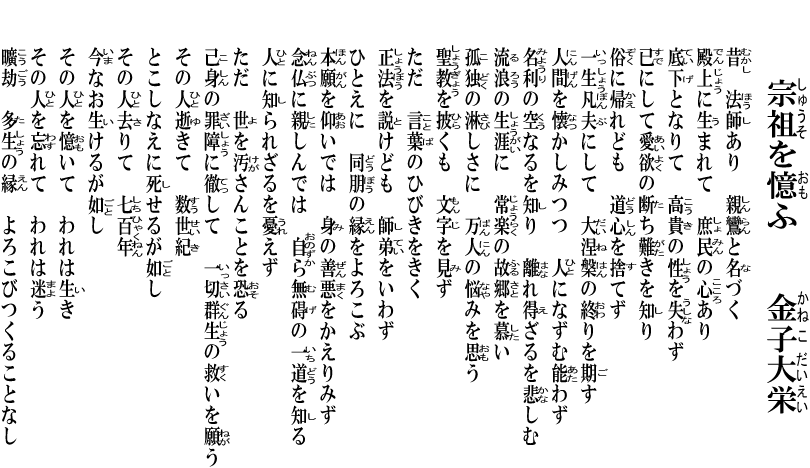 宗祖を憶ふ　金子大栄
昔　法師あり　親鸞と名づく
殿上に生まれて　庶民の心あり
底下となりて　高貴の性を失わず
已にして愛欲の断ち難きを知り
俗に帰れども　道心を捨てず
一生凡夫にして　大涅槃の終りを期す
人間を懐かしみつつ　人になずむ能わず
名利の空なるを知り　離れ得ざるを悲しむ
流浪の生涯に　常楽の故郷を慕い
孤独の淋しさに　万人の悩みを思う
聖教を披くも　文字を見ず
ただ　言葉のひびきをきく
正法を説けども　師弟をいわず
ひとえに　同朋の縁をよろこぶ
本願を仰いでは　身の善悪をかえりみず
念仏に親しんでは　自ら無碍の一道を知る
人に知られざるを憂えず
ただ　世を汚さんことを恐る
己身の罪障に徹して　一切群生の救いを願う
その人逝きて　数世紀
とこしなえに死せるが如し
その人去りて　七百年
今なお生けるが如し
その人を憶いて　われは生き
その人を忘れて　われは迷う
曠劫　多生の縁　よろこびつくることなし